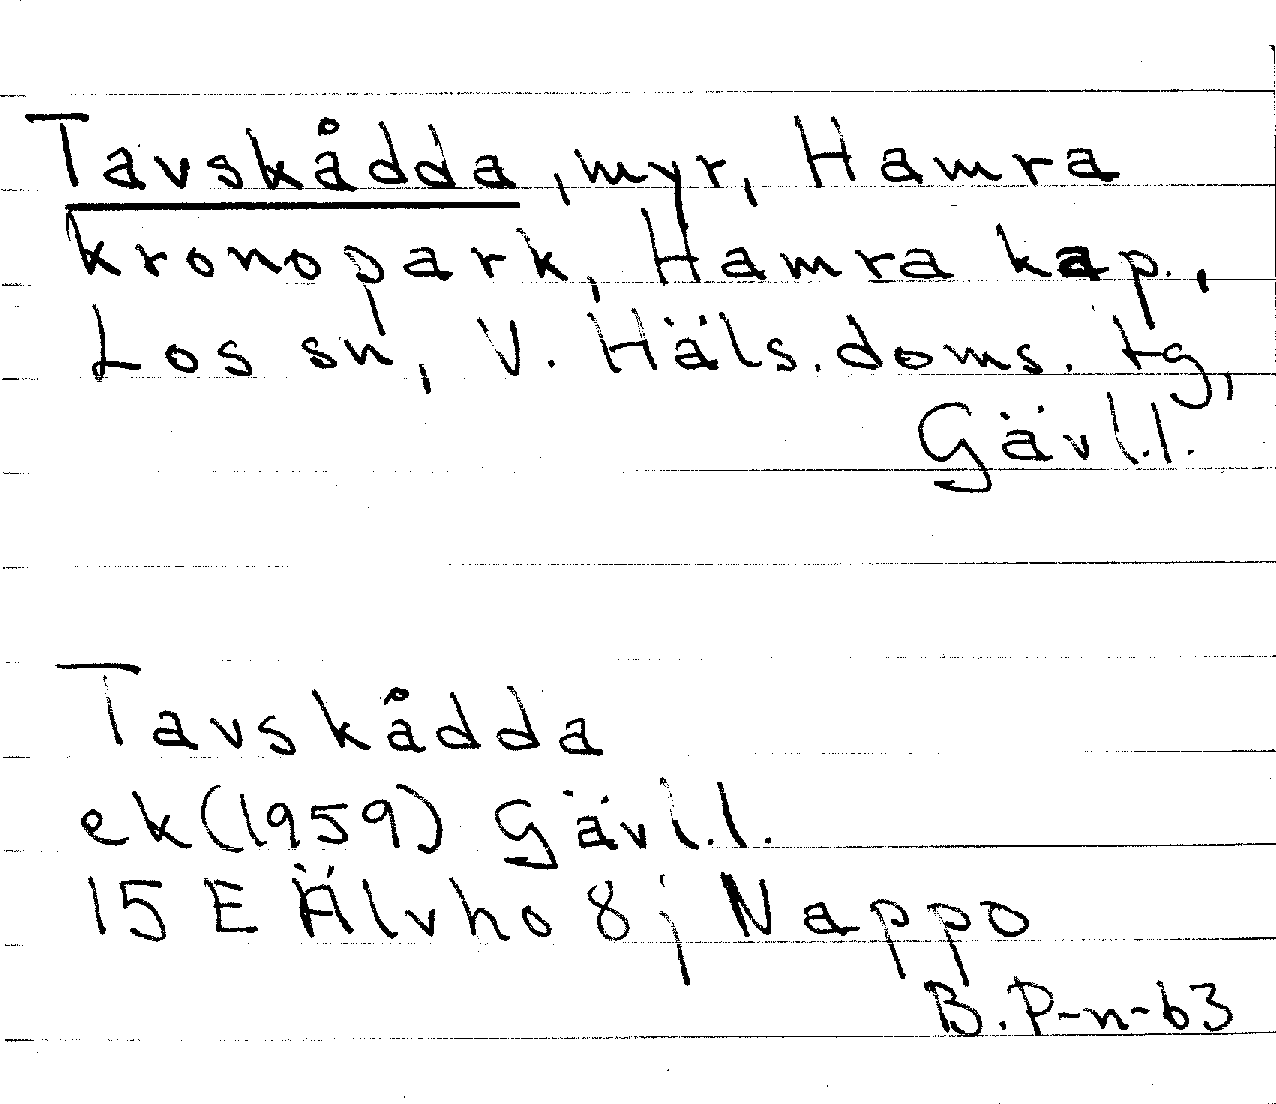 Tavskådda, myr, Hamra
kronopark, Hamra kap.,
Los sn, V. Häls. doms. tg,
Gävl.l.
Tavskådda
ek (1959) Gävl.l.
15 E Älvho 8j Nappo
B. P-n-63